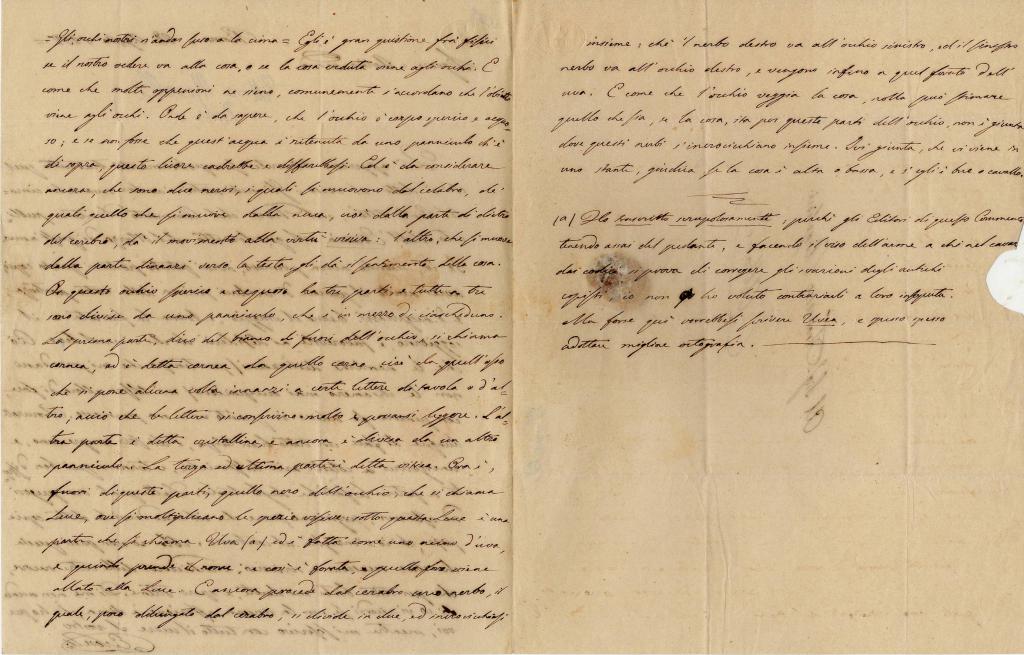 = Gli occhi nostri n'andar suso a la cima = Egli è gran quistione fra' fisici
se il nostro vedere va alla cosa, o se la cosa veduta viene agli occhi. E
come che molte oppenioni ne sieno, comunemente s'accordano che l'obietto
viene agli occhi. Onde è da sapere, che l'occhio è corpo sperico e acquo-
so; e se non fosse che quest'acqua è ritenuta da uno panniculo ch'è
di sopra, questo licore cadrebbe e Ed è da considerare
ancora, che sono due nervi, i quali si muovono dal celabro, de'
quali quello che si muove dalla nuca, cioè dalla parte di dietro
del cerebro, dà il movimento alla virtù visiva: l'altro, che si muove
dalla parte dinanzi verso la testa gli dà il sentimento della cosa.
Or questo occhio sperico e acquoso ha tre parti, e tutte a tre
sono divise da uno panniculo, che è in mezzo di ciascheduno.
La prima parte, dico del bianco di fuori dell'occhio, si chiama
cornea, ed è detta cornea da quello corno, cioè da quell'osso
che si pone alcuna volta innanzi a certe lettere di tavola o d'al-
tro, acciò che le lettere si conservino molto e possansi leggere. L'al-
tra parte è detta cristallina, e ancora è divisa da un altro
panniculo. La terza ed ultima parte è detta vitrea. Ora è,
fuori di queste parti, quello nero dell'occhio, che si chiama
Luce, ove si moltiplicano le spezie visive: sotto questa Luce è una
parte che si chiama Uva (a) ed è fatta come uno acino d'uva,
e quindi prende il nome; e così è forata e quello foro viene
allato alla Luce. E ancora procede dal cerabro uno nerbo, il
quale, poco dilungato dal cerabro, si divide in due, ed incrocicchiasi
insieme; che 'l nerbo destro va all'occhio sinistro, ed il sinistro
nerbo va all'occhio destro, e vengono infino a quel punto dell'
uva. E come che l'occhio veggia la cosa, nolla può stimare
quello che sia, se la cosa, ita per queste parti dell'occhio, non è giunta
dove questi nerbi s'incrocicchiano insieme. Ivi giunta, che vi viene in
uno stante, giudica se la cosa è alta o bassa, e s'egli è bue o cavallo.
(a) Ho trascritto scrupolosamente, perché gli Editori di questo Commento
tenendo assai del pedante, e facendo il viso dell'arme a chi nel cavar
dai codici si prova di correggere gli svarioni degli antichi
copisti, io non ho voluto contrariarli a loro insaputa.
Ma forse quì vorrebbesi scrivere Uvea, e spesso spesso
adottare migliore ortografia.